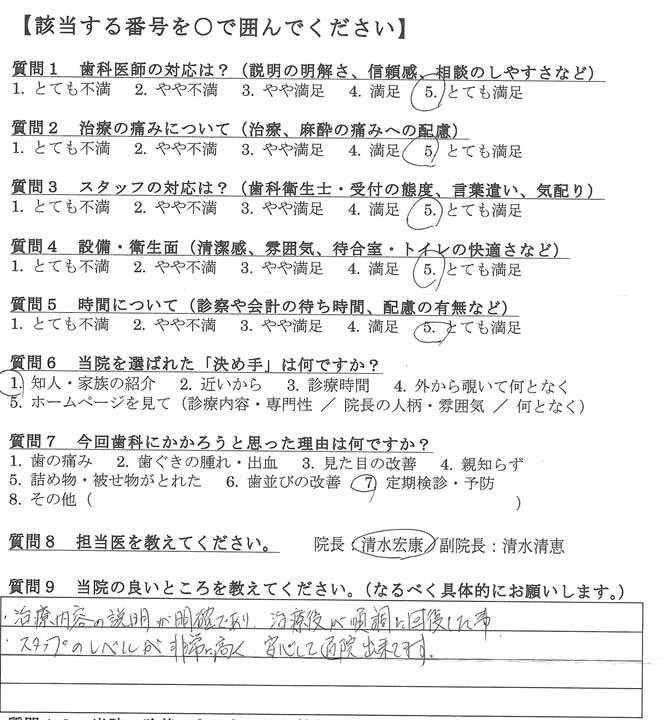 【該当する番号を〇で囲んでください】
質問1 歯科医師の対応は?(説明の明解さ、信頼感、相談のしやすさなど)
1. とても不満 2. やや不満 3. やや満足 4. 満足 5. とても満足
質問2 治療の痛みについて(治療、麻酔の痛みへの配慮)
1. とても不満 2. やや不満 3. やや満足 4. 満足 5. とても満足
質問3 スタッフの対応は?(歯科衛生士・受付の態度、言葉遣い、気配り)
1. とても不満 2. やや不満 3. やや満足 4. 満足 5. とても満足
質問4 設備・衛生面(清潔感、雰囲気、待合室・トイレの快適さなど)
1. とても不満 2. やや不満 3. やや満足 4. 満足 5. とても満足
質問5 時間について(診察や会計の待ち時間、配慮の有無など)
1. とても不満 2. やや不満 3. やや満足 4. 満足 5. とても満足
質問6 当院を選ばれた「決め手」は何ですか?
1. 知人・家族の紹介 2. 近いから 3. 診療時間 4. 外から覗いて何となく
5. ホームページを見て(診療内容・専門性 / 院長の人柄・雰囲気 / 何となく)
質問7 今回歯科にかかろうと思った理由は何ですか?
1. 歯の痛み 2. 歯ぐきの腫れ・出血 3. 見た目の改善 4. 親知らず
5. 詰め物・被せ物がとれた 6. 歯並びの改善 7 定期検診・予防
8. その他( )
質問8 担当医を教えてください。 院長:清水宏康/副院長:清水清恵
質問9 当院の良いところを教えてください。(なるべく具体的にお願いします。)
・治療内容の説明が明確であり、治療後が順調に回復した事
・スタッフのレベルが非常に高く、安心して通院出来てます。